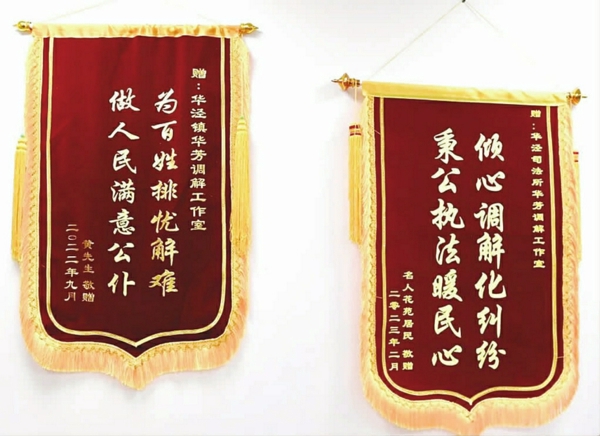 赠：华泾镇华芳调解工作室
为百姓排忧解难
做人民满意公仆
黄先生 敬赠
二〇二二年九月
赠：华泾司法所华芳调解工作室
倾心调解化纠纷
秉公执法暖民心
名人花苑居民 敬赠
二零二三年二月